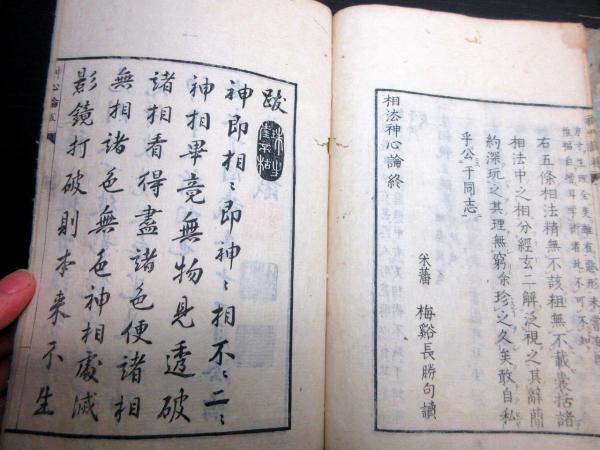 右五條相法精無不該粗無不載嚢括諸
相法中之相分經玄二解泛視之其辭簡
約深玩之其理無窮余珍之久矣敢自私
乎公于同志
米藩 梅谿長勝句讀
相法神心論終
跋
神即相〻即神〻相不〻二〻
神相畢竟無物見透破
諸相看得盡諸色便諸相
無相諸色無色神相處滅
影鏡打破則本来不生